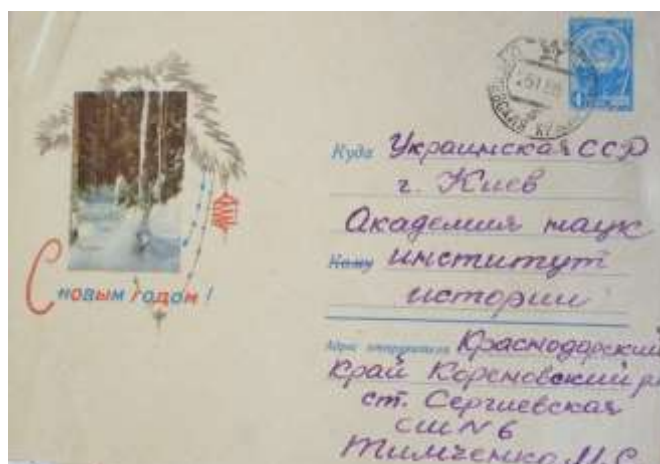 Куда Украинская ССР
г. Киев
Академия наук
Кому институт
истории
С новым годом!
Адрес отправителя Краснодарский
край Кореновский р
ст. Сергиевская
СШ N 6
Тимченко М.С.